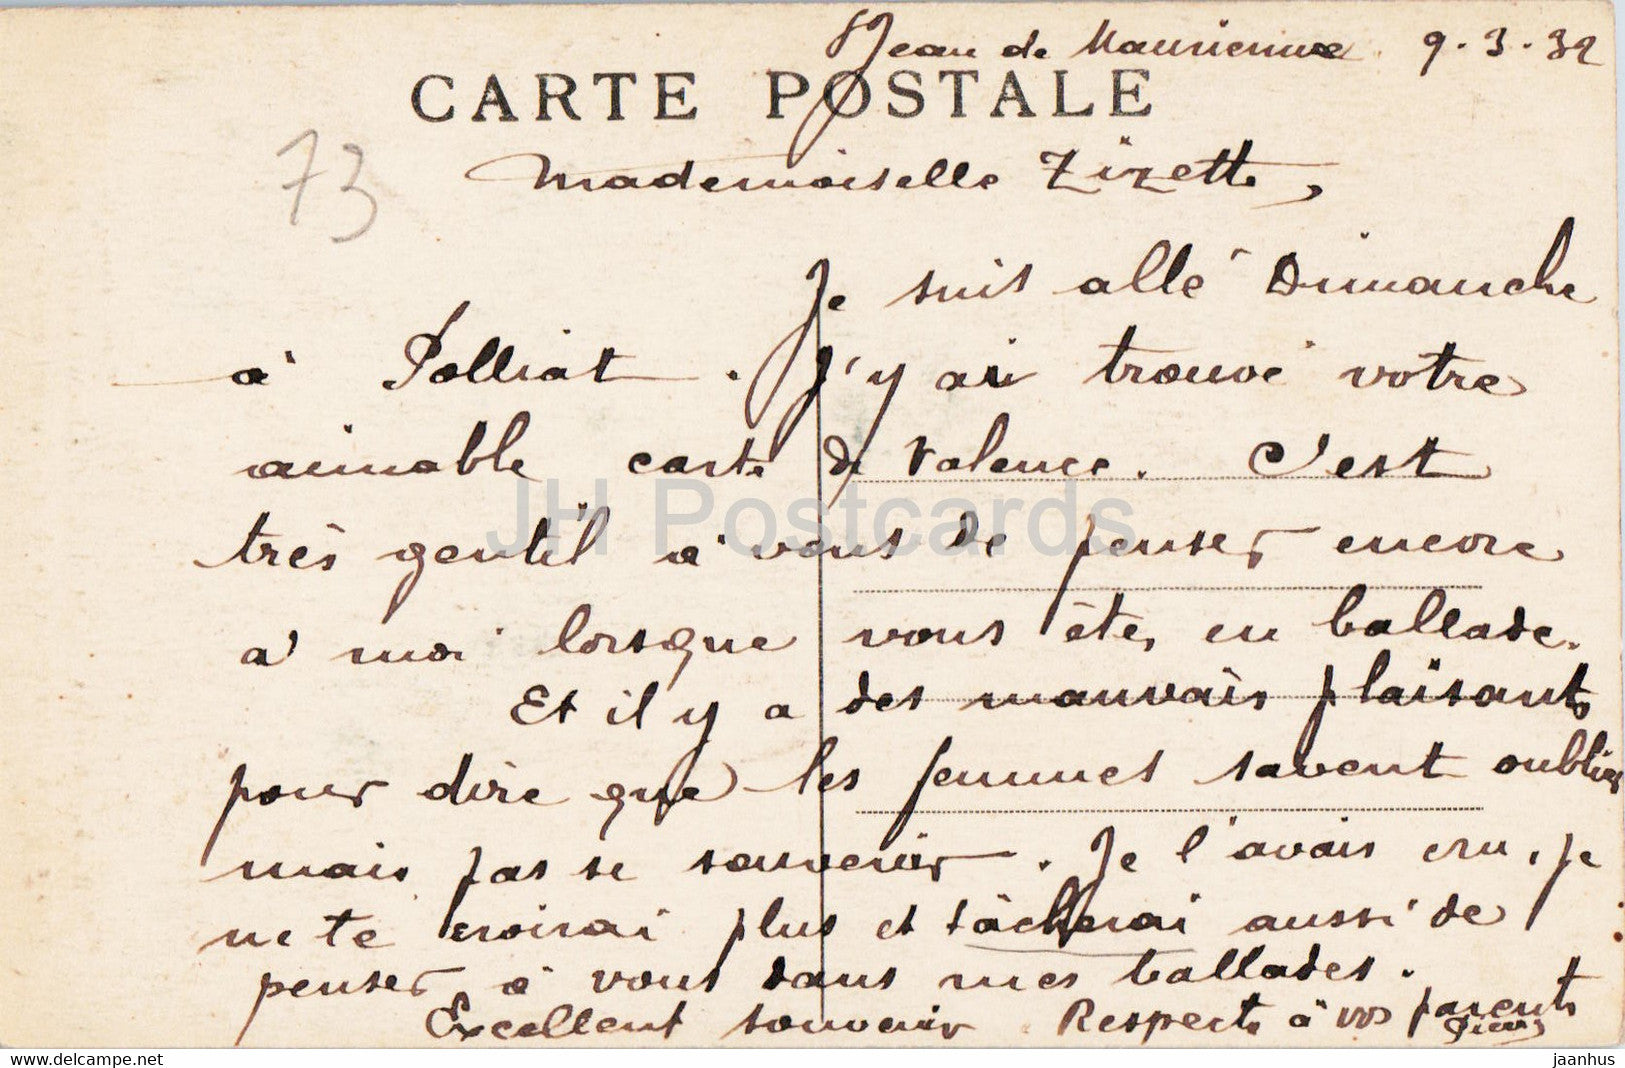 St Jean de Maurienne 9.3.32
CARTE POSTALE
73
Mademoiselle Zizette,
Je suis allé Dimanche
à Polliat. J'y ai trouvé votre
aimable carte de Valence. C'est
très gentil à vous de penser encore
à moi lorsque vous êtes en ballade.
Et il y a des mauvais plaisants
pour dire que les femmes savent oublier
mais pas se souvenir. Je l'avais cru, je
ne te croirai plus et tâcherai aussi de
penser à vous dans mes ballades.
Excellent souvenir. Respects à vos parents
JH Postcards
jaanhus.com
jaanhus